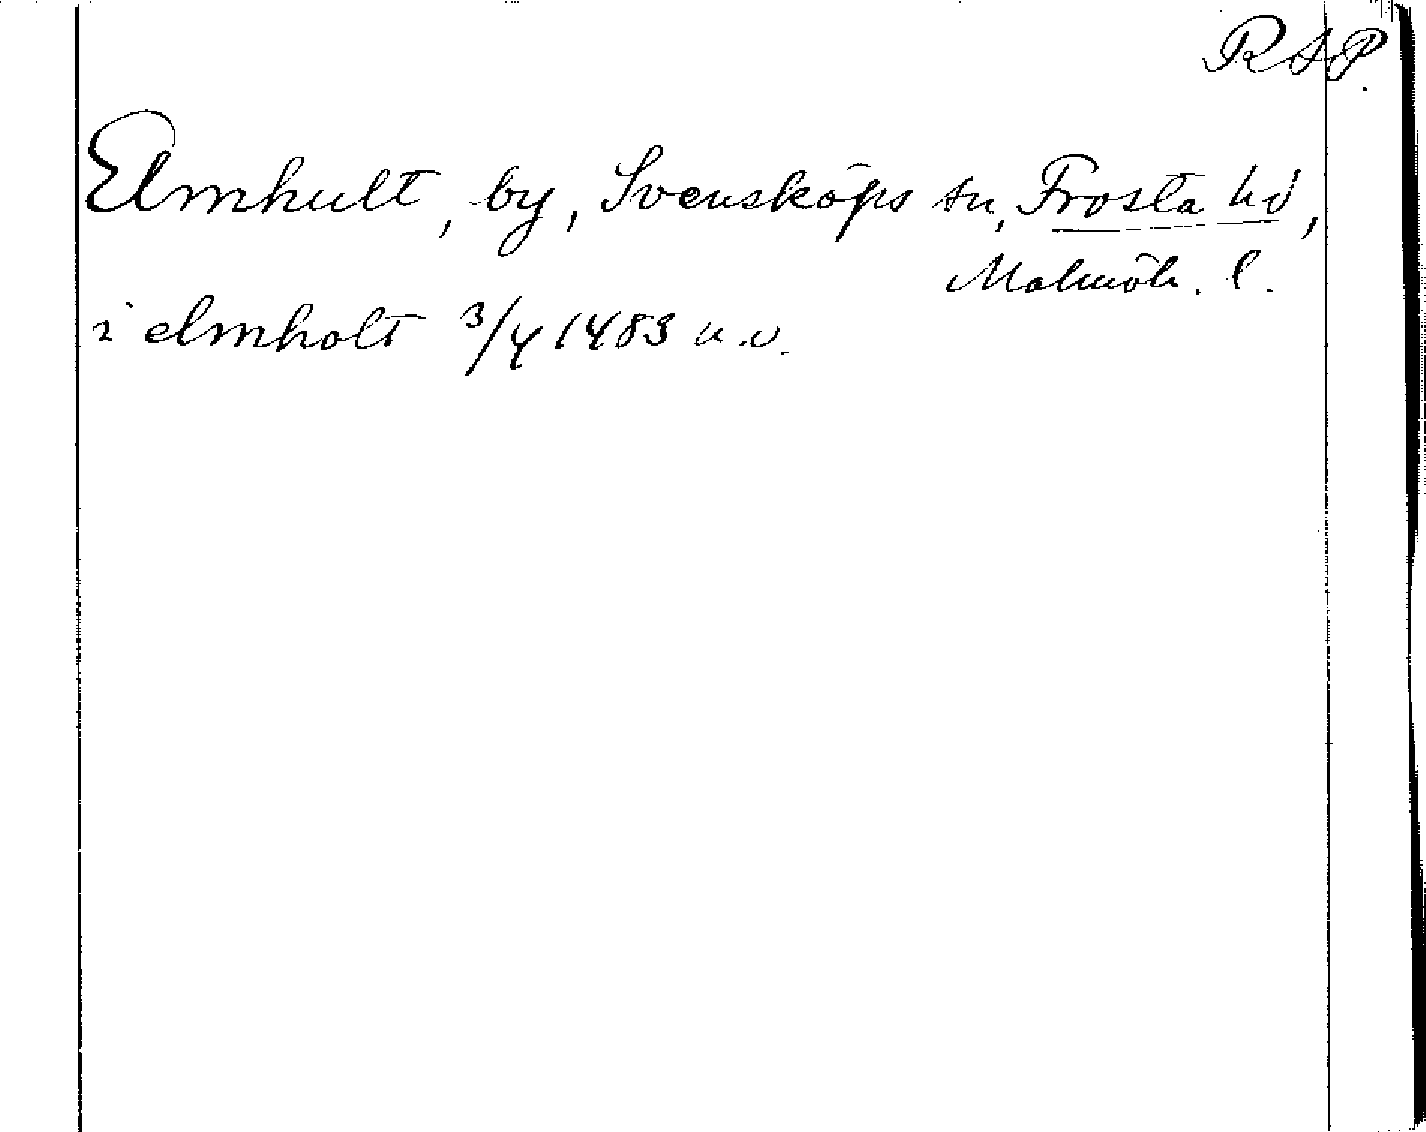 RSP.
Elmhult, by, Svensköps sn, Frosta hd,
Malmöh. l.
i elmholt 3/4 1483 u.v.